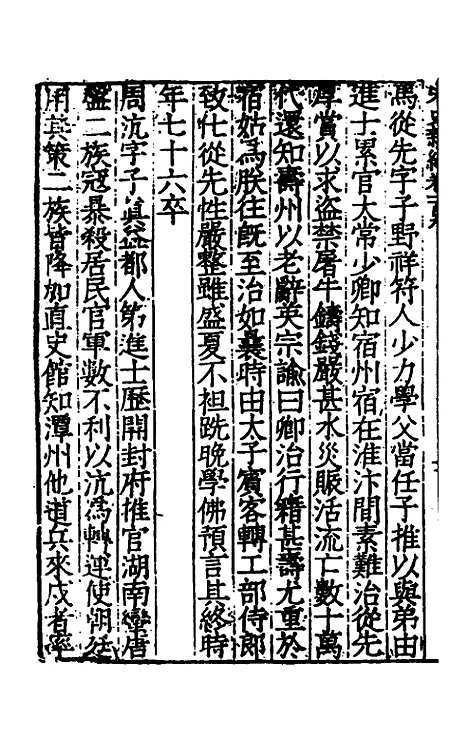 馬從先字子野祥符人少力學父當任子推以與弟由
進士累官太常少卿知宿州宿在淮汴間素難治從先
厚賞以求盜禁屠牛鑄錢嚴甚水災賑活流亡數十萬
代還知壽州以老辭英宗諭曰卿治行籍甚壽尤重於
宿姑為朕往旣至治如襄時由太子賓客轉工部侍郎
致仕從先性嚴整雖盛夏不袒跣晚學佛預言其終時
年七十六卒
周沆字子眞益都人第進士歷開封府推官湖南蠻唐
盤二族冦暴殺居民官軍數不利以沆為轉運使朝廷
用其策二族皆降加直史館知潭州他道兵來戍者率